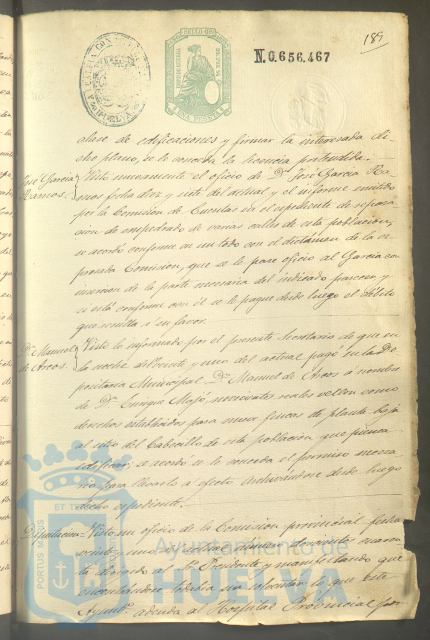 189
N.0.656.467
clase de edificaciones y firmar la interesada di-
cho plano, se le conceda la licencia pretendida.
José García Ramos. Visto nuevamente el oficio de Dn José García Ra-
mos fecha diez y siete del actual y el informe emitido
por la Comision de Cuentas en el espediente de repara-
cion de empedrado de varias calles de esta poblacion;
se acordó conforme en un todo con el dictámen de la es-
presada Comision, que se le pase oficio al García con
insercion de la parte necesaria del indicado parecer y
si está conforme con él se le pague desde luego el débito
que resulta á su favor.
Dn Manuel de Arcos. Visto lo informado por el presente Secretario de que en
la noche del veinte y uno del actual pagó en la De-
positaría Municipal Dn Manuel de Arcos á nombre
de Dn Enrique novecientos reales vellon como
derechos establecidos para nueve fincas de planta baja
al sitio del Cabecillo de esta poblacion que piensa
edificar; se acordó se le conceda el permiso necesa-
rio para llevarlo á efecto archivándose desde luego
dicho espediente.
Diputacion. Visto un oficio de la Comision provincial fecha
veinte y uno del actual número doscientos
dirigido al Sr Presidente y manifestando que
lo que este
Ayunto adeuda al Hospital Provincial por
Ayuntamiento de
HUELVA
PORTUS MARIS
ET TERRAE